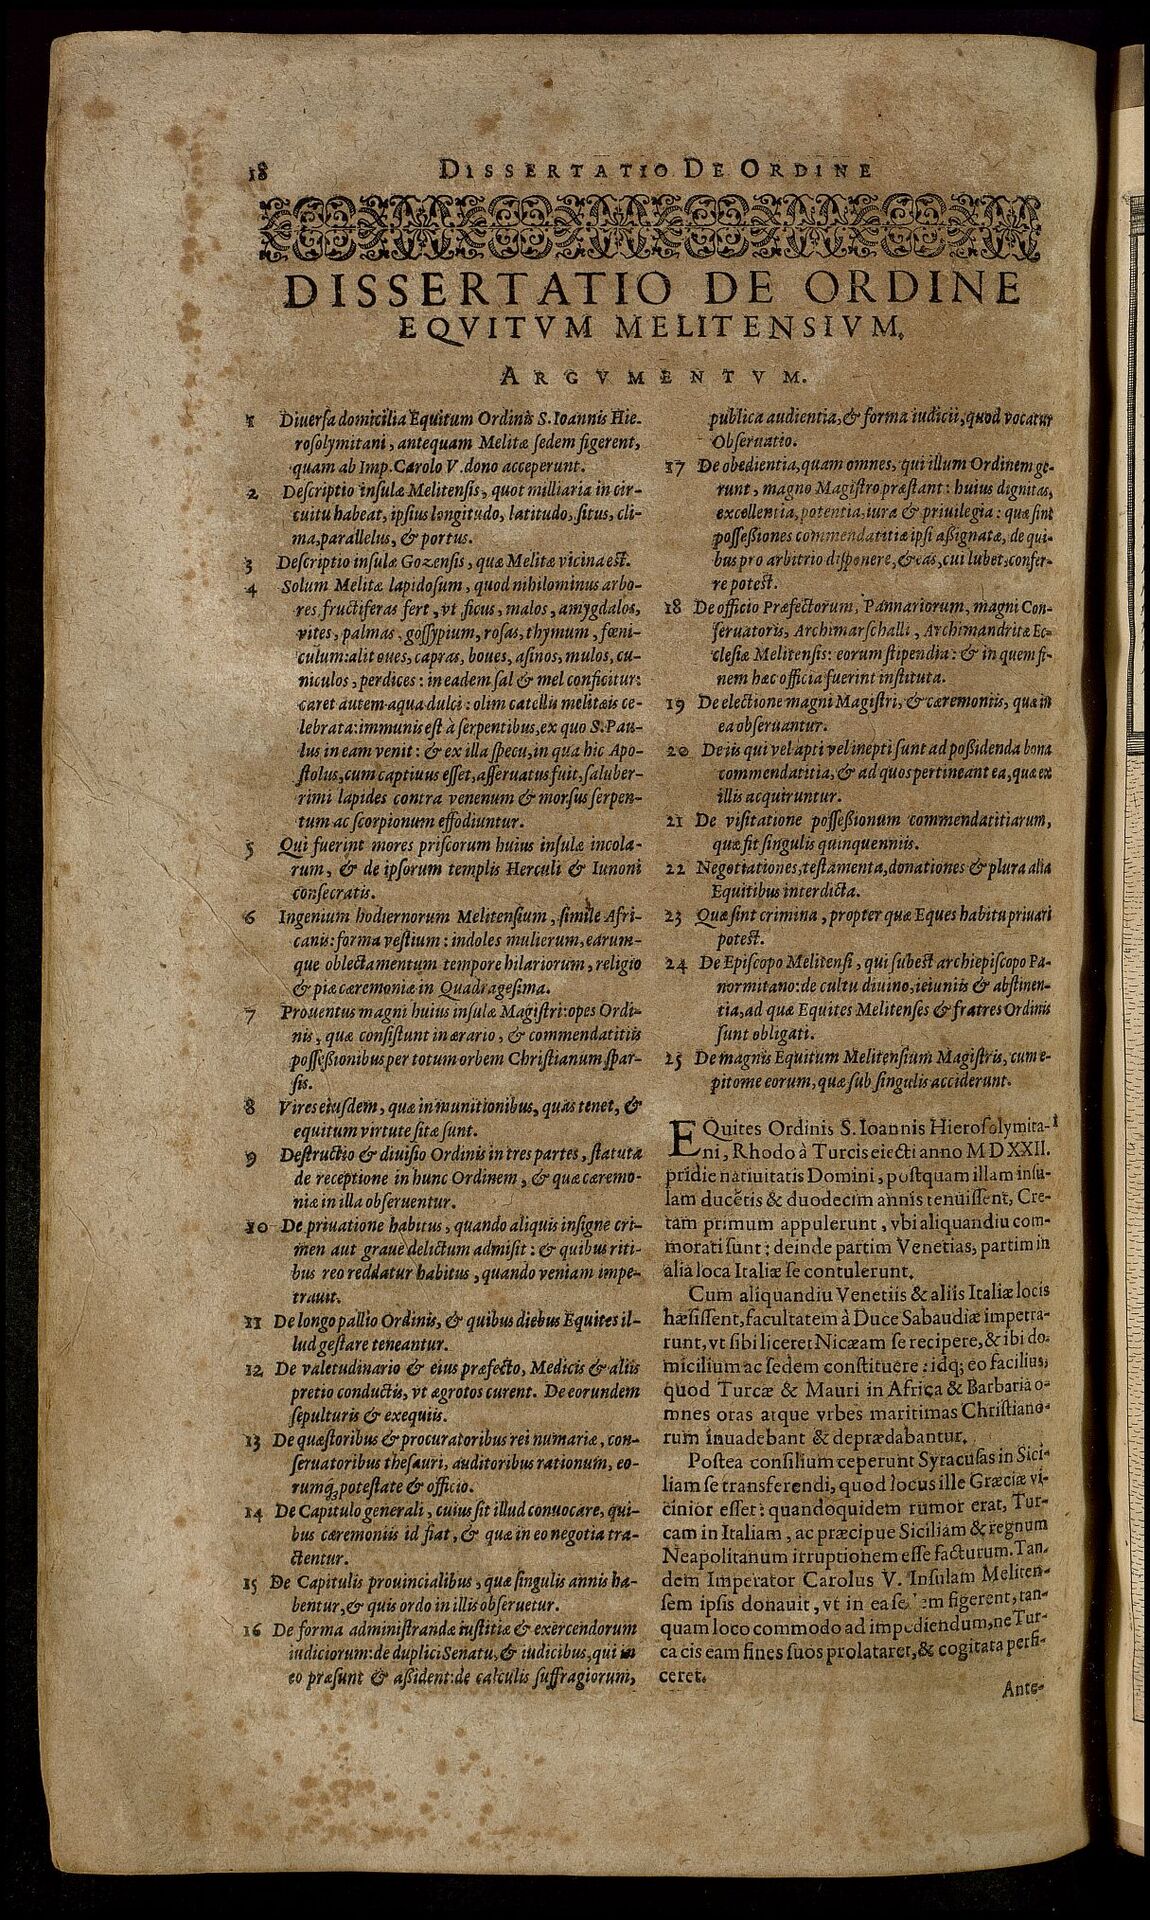 18 DISSERTATIO DE ORDINE
DISSERTATIO DE ORDINE
EQVITVM MELITENSIVM.
ARGVMENTVM.
1 Diuersa domicilia Equitum Ordinis S. Ioannis Hie-
rosolymitani, antequam Melitæ sedem figerent,
quam ab Imp. Carolo V. dono acceperunt.
2 Descriptio insulæ Melitensis, quot milliaria in cir-
cuitu habeat, ipsius longitudo, latitudo, situs, cli-
ma, parallelus, & portus.
3 Descriptio insulæ Gozensis, quæ Melitæ vicina est.
4 Solum Melitæ lapidosum, quod nihilominus arbo-
res fructiferas fert, vt ficus, malos, amygdalos,
vites, palmas, gossypium, rosas, thymum, fœni-
culum: alit oues, capras, boues, asinos, mulos, cu-
niculos, perdices: in eadem sal & mel conficitur:
caret autem aqua dulci: olim catellis melitæis ce-
lebrata: immunis est à serpentibus, ex quo S. Pau-
lus in eam venit: & ex illa specu, in qua hic Apo-
stolus, cum captiuus esset, asseruatus fuit, saluber-
rimi lapides contra venenum & morsus serpen-
tum ac scorpionum effodiuntur.
5 Qui fuerint mores priscorum huius insulæ incola-
rum, & de ipsorum templis Herculi & Iunoni
consecratis.
6 Ingenium hodiernorum Melitensium, simile Afri-
canis: forma vestium: indoles mulierum, earum-
que oblectamentum tempore hilariorum, religio
& piæ cæremoniæ in Quadragesima.
7 Prouentus magni huius insulæ Magistri: opes Ordi-
nis, quæ consistunt in ærario, & commendatitiis
possessionibus per totum orbem Christianum spar-
sis.
8 Vires eiusdem, quæ in munitionibus, quas tenet, &
equitum virtute sitæ sunt.
9 Destructio & diuisio Ordinis in tres partes, statuta
de receptione in hunc Ordinem, & quæ cæremo-
niæ in illa obseruentur.
10 De priuatione habitus, quando aliquis insigne cri-
men aut graue delictum admisit: & quibus riti-
bus reo reddatur habitus, quando veniam impe-
trauit.
11 De longo pallio Ordinis, & quibus diebus Equites il-
lud gestare teneantur.
12 De valetudinario & eius præfecto, Medicis & aliis
pretio conductis, vt ægrotos curent. De eorundem
sepulturis & exequiis.
13 De quæstoribus & procuratoribus rei numariæ, con-
seruatoribus thesauri, auditoribus rationum, eo-
rumq; potestate & officio.
14 De Capitulo generali, cuius sit illud conuocare, qui-
bus cæremoniis id fiat, & quæ in eo negotia tra-
ctentur.
15 De Capitulis prouincialibus, quæ singulis annis ha-
bentur, & quis ordo in illis obseruetur.
16 De forma administrandæ iustitiæ & exercendorum
iudiciorum: de duplici Senatu, & iudicibus, qui in
eo præsunt & assident: de calculis suffragiorum,
publica audientia, & forma iudicii, quod vocatur
Obseruatio.
17 De obedientia, quam omnes, qui illum Ordinem ge-
runt, magno Magistro præstant: huius dignitas,
excellentia, potentia, iura & priuilegia: quæ sint
possessiones commendatitiæ ipsi assignatæ, de qui-
bus pro arbitrio disponere, & eas, cui lubet, confer-
re potest.
18 De officio Præfectorum, Pannariorum, magni Con-
seruatoris, Archimarschalli, Archimandritæ Ec-
clesiæ Melitensis: eorum stipendia: & in quem fi-
nem hæc officia fuerint instituta.
19 De electione magni Magistri, & cæremoniis, quæ in
ea obseruantur.
20 De iis qui vel apti vel inepti sunt ad possidenda bona
commendatitia, & ad quos pertineant ea, quæ ex
illis acquiruntur.
21 De visitatione possessionum commendatitiarum,
quæ fit singulis quinquenniis.
22 Negotiationes, testamenta, donationes & plura alia
Equitibus interdicta.
23 Quæ sint crimina, propter quæ Eques habitu priuari
potest.
24 De Episcopo Melitensi, qui subest archiepiscopo Pa-
normitano: de cultu diuino, ieiuniis & abstinen-
tia, ad quæ Equites Melitenses & fratres Ordinis
sunt obligati.
25 De magnis Equitum Melitensium Magistris, cum e-
pitome eorum, quæ sub singulis acciderunt.
EQuites Ordinis S. Ioannis Hierosolymita- 1
ni, Rhodo à Turcis eiecti anno MDXXII.
pridie natiuitatis Domini, postquam illam insu-
lam ducẽtis & duodecim annis tenuissent, Cre-
tam primum appulerunt, vbi aliquandiu com-
morati sunt: deinde partim Venetias, partim in
alia loca Italiæ se contulerunt.
Cum aliquandiu Venetiis & aliis Italiæ locis
hæsissent, facultatem à Duce Sabaudiæ impetra-
runt, vt sibi liceret Nicæam se recipere, & ibi do-
micilium ac sedem constituere: idq; eo facilius,
quod Turcæ & Mauri in Africa & Barbaria o-
mnes oras atque vrbes maritimas Christiano-
rum inuadebant & deprædabantur.
Postea consilium ceperunt Syracusas in Sici-
liam se transferendi, quod locus ille Græciæ vi-
cinior esset: quandoquidem rumor erat, Tur-
cam in Italiam, ac præcipue Siciliam & regnum
Neapolitanum irruptionem esse facturum. Tan-
dem Imperator Carolus V. Insulam Meliten-
sem ipsis donauit, vt in ea figerent, tan-
quam loco commodo ad impediendum, ne Tur-
ca cis eam fines suos prolataret, & cogitata perfi-
ceret.
Ante-